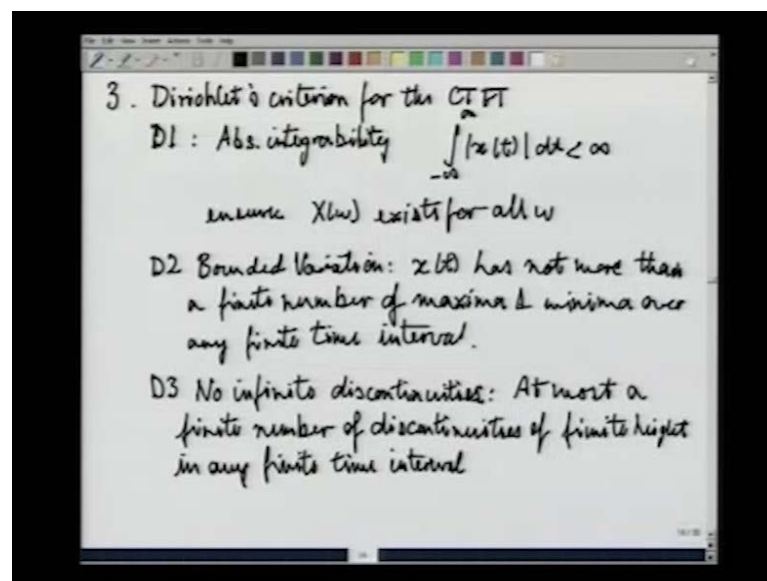 3. Dirichlet's criterion for the CTFT
D1 : Abs. integrability ∫_{-∞}^{∞} |x(t)| dt < ∞
ensure X(ω) exists for all ω
D2 Bounded Variation: x(t) has not more than
a finite number of maxima & minima over
any finite time interval.
D3 No infinite discontinuities: At most a
finite number of discontinuities of finite height
in any finite time interval